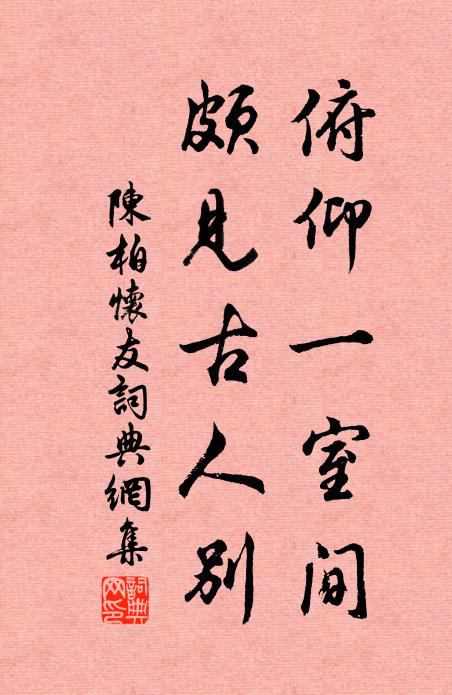 俯仰一室間
頗見古人別
陳柏懷友詞典網集
詞典网印